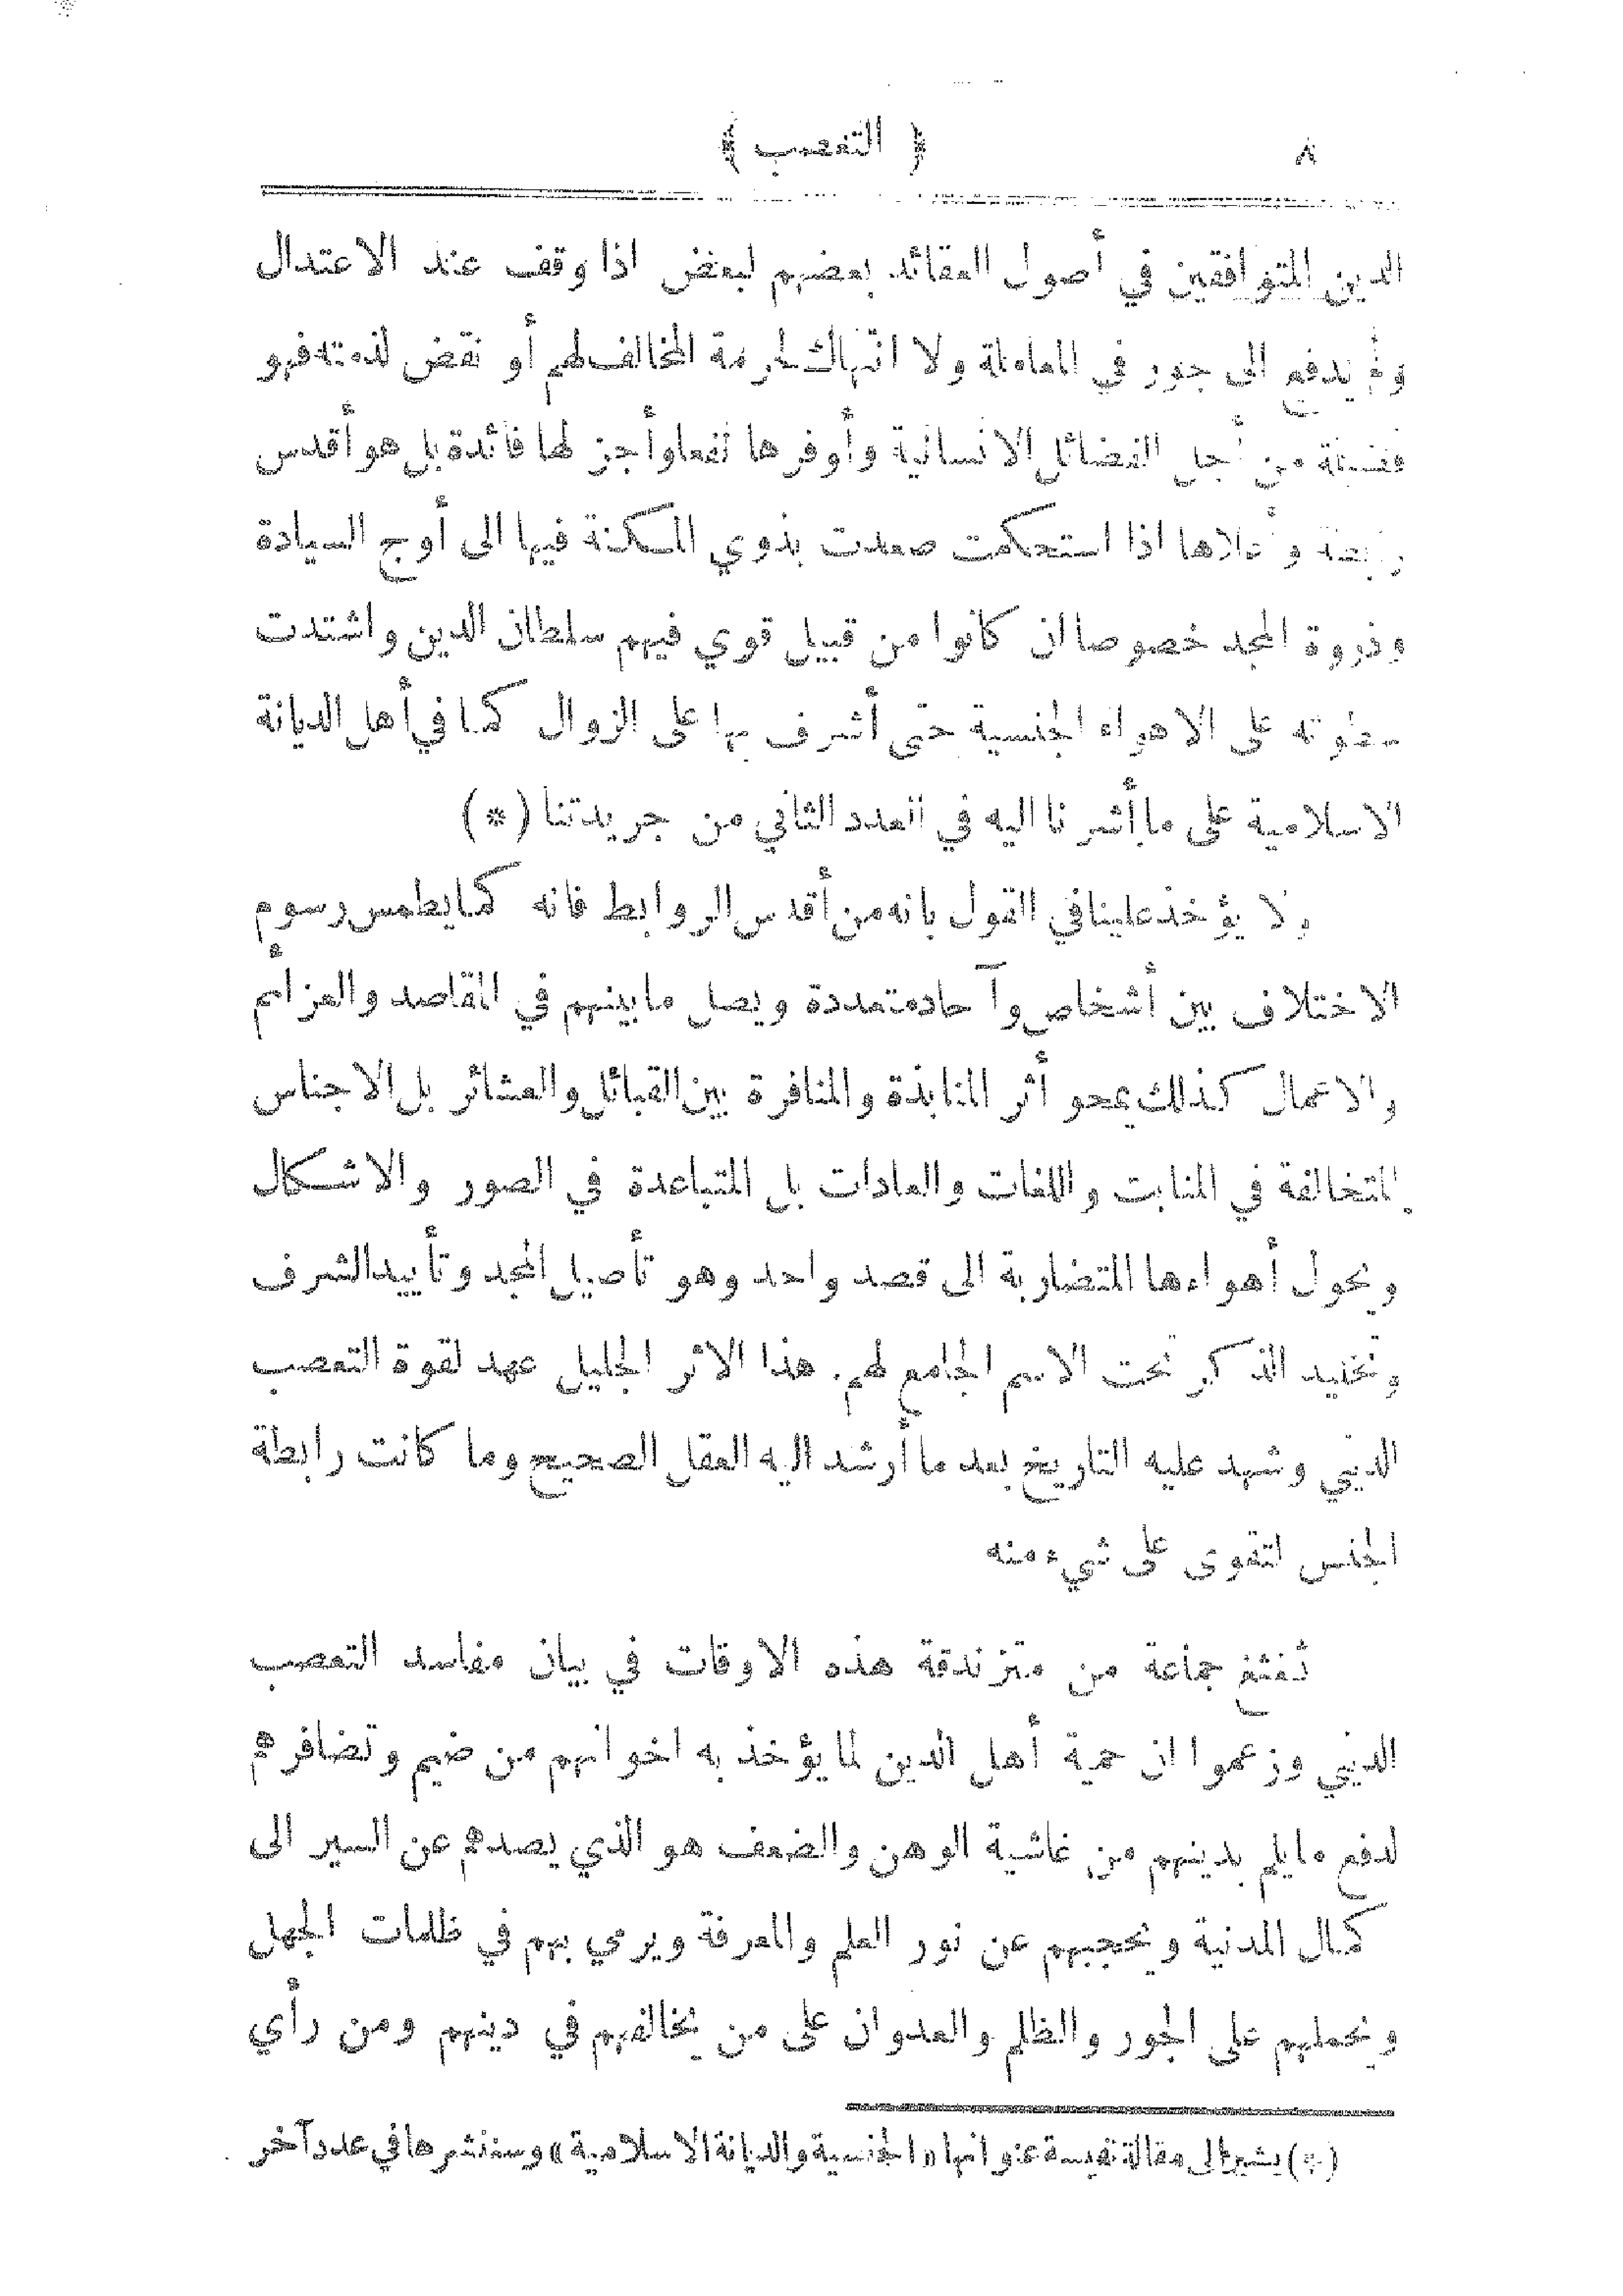 ٨
﴿ التعصب ﴾
الدين المتوافقين في أصول العقائد بعضهم لبعض اذا وقف عند الاعتدال
ولم يدفع الى جور في المعاملة ولا انتهاك لحرمة المخالف لهم أو نقض لذمته فهو
فضيلة من أجل الفضائل الانسانية وأوفرها نفعا وأجزلها فائدة بل هو أقدس
رابطة وأعلاها اذا استحكمت صعدت بذوي المكنة فيها الى أوج السيادة
وذروة المجد خصوصا ان كانوا من قبيل قوي فيهم سلطان الدين واشتدت
سطوته على الاهواء الجنسية حتى أشرف بها على الزوال كما في أهل الديانة
الاسلامية على ما أشرنا اليه في العدد الثاني من جريدتنا (*)
ولا يؤخذ علينا في القول بانه من أقدس الروابط فانه كما يطمس رسوم
الاختلاف بين أشخاص وآحاد متعددة ويصل ما بينهم في المقاصد والعزائم
والاعمال كذلك يمحو أثر المنابذة والمنافرة بين القبائل والعشائر بل الاجناس
المتخالفة في المنابت واللغات والعادات بل المتباعدة في الصور والاشكال
ويحول أهواءها المتضاربة الى قصد واحد وهو تأصيل المجد وتأييد الشرف
وتخليد الذكر تحت الاسم الجامع لهم. هذا الاثر الجليل عهد لقوة التعصب
الديني وشهد عليه التاريخ بعد ما أرشد اليه العقل الصحيح وما كانت رابطة
الجنس لتقوى على شيء منه
ثغثغ جماعة من متزندقة هذه الاوقات في بيان مفاسد التعصب
الديني وزعموا ان حمية أهل الدين لما يؤخذ به اخوانهم من ضيم وتضافرهم
لدفع ما يلم بدينهم من غاشية الوهن والضعف هو الذي يصدهم عن السير الى
كمال المدنية ويحجبهم عن نور العلم والمعرفة ويرمي بهم في ظلمات الجهل
ويحملهم على الجور والظلم والعدوان على من يخالفهم في دينهم ومن رأي
(*) يشير الى مقالة نفيسة عنوانها «الجنسية والديانة الاسلامية» وسننشرها في عدد آخر